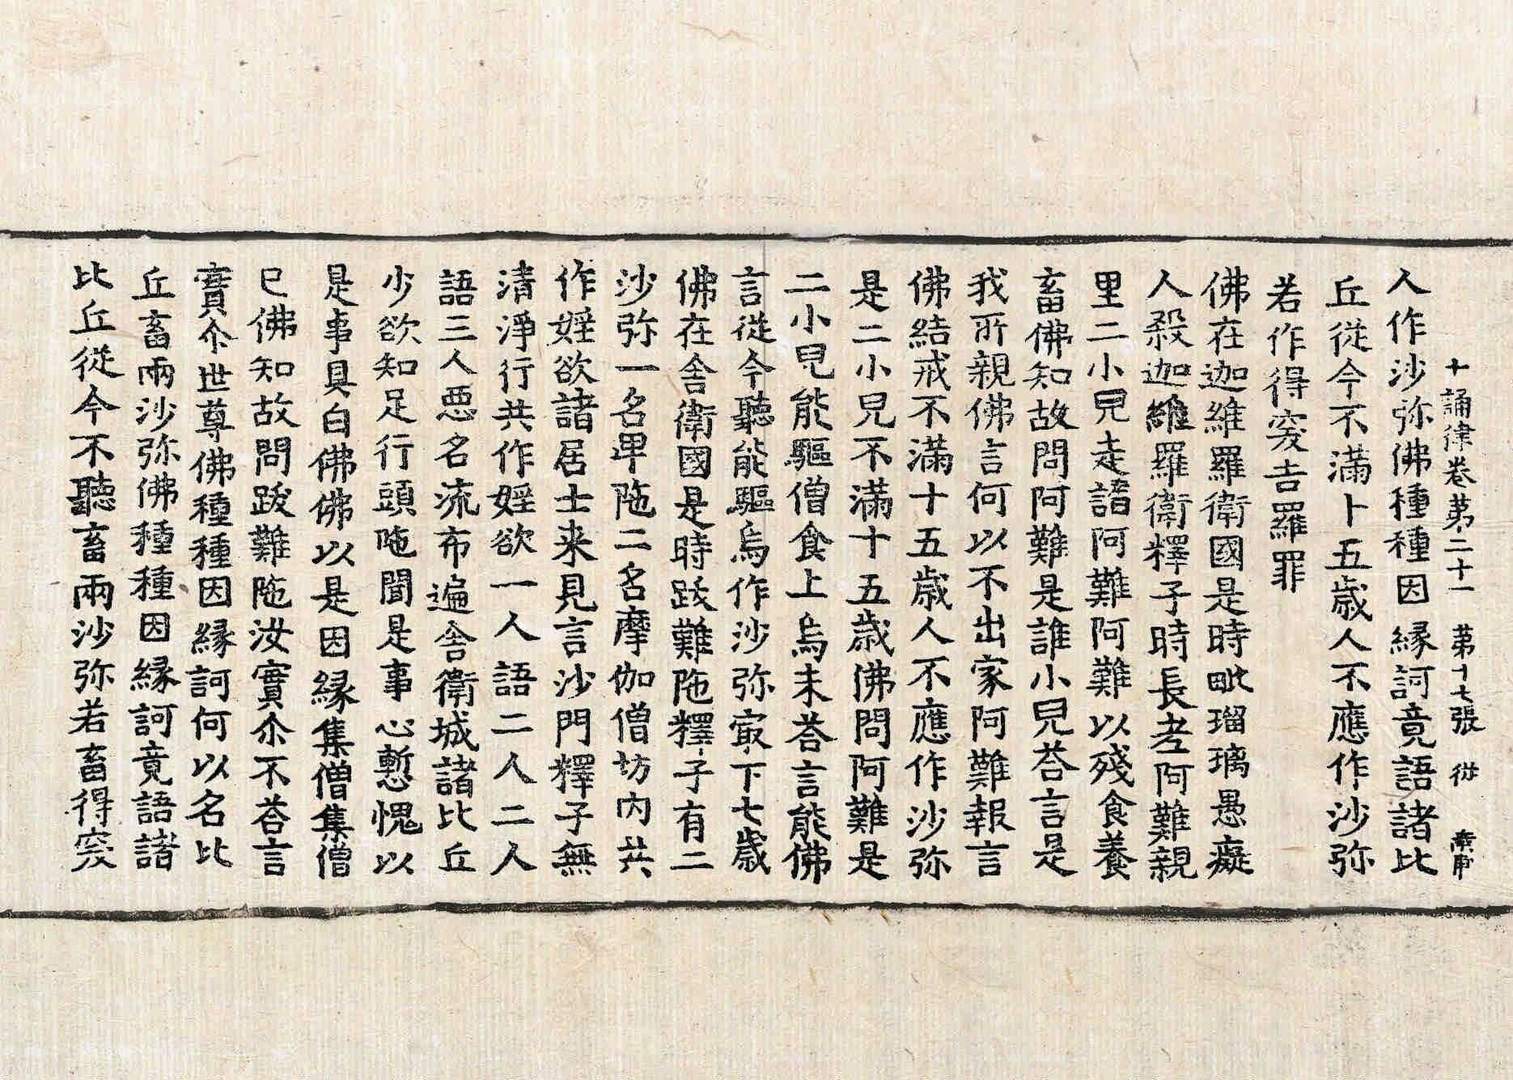 十誦律卷苐二十一　苐十七張　攽
人作沙弥佛種種因縁訶竟語諸比
丘從今不滿十五歳人不應作沙弥
若作得突吉羅罪
佛在迦維羅衛國是時毗瑠璃愚癡
人殺迦維羅衛釋子時長老阿難親
里二小兒走詣阿難阿難以殘食養
畜佛知故問阿難是誰小兒荅言是
我所親佛言何以不出家阿難報言
佛結戒不滿十五歳人不應作沙弥
是二小兒不滿十五歳佛問阿難是
二小兒能驅僧食上烏未荅言能佛
言從今聽能驅烏作沙弥㝡下七歳
佛在舎衛國是時跋難陁釋子有二
沙弥一名卑陁二名摩伽僧坊内共
作婬欲諸居士来見言沙門釋子無
清淨行共作婬欲一人語二人二人
語三人惡名流布遍舎衛城諸比丘
少欲知足行頭陁聞是事心慙愧以
是事具白佛佛以是因縁集僧集僧
已佛知故問跋難陁汝實尒不荅言
實尒世尊佛種種因縁訶何以名比
丘畜兩沙弥佛種種因縁訶竟語諸
比丘從今不聽畜兩沙弥若畜得突